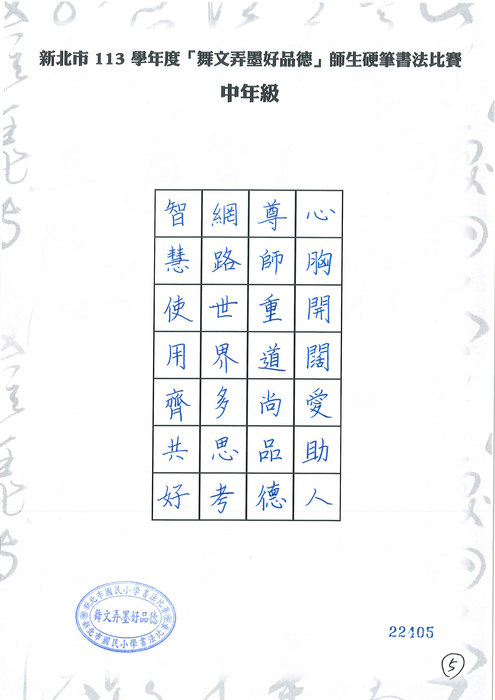 新北市 113 學年度「舞文弄墨好品德」師生硬筆書法比賽
中年級
心胸開闊愛助人
尊師重道尚品德
網路世界多思考
智慧使用齊共好
新北市國民小學書法比賽
舞文弄墨好品德
新北市國民小學書法比賽
22405
5